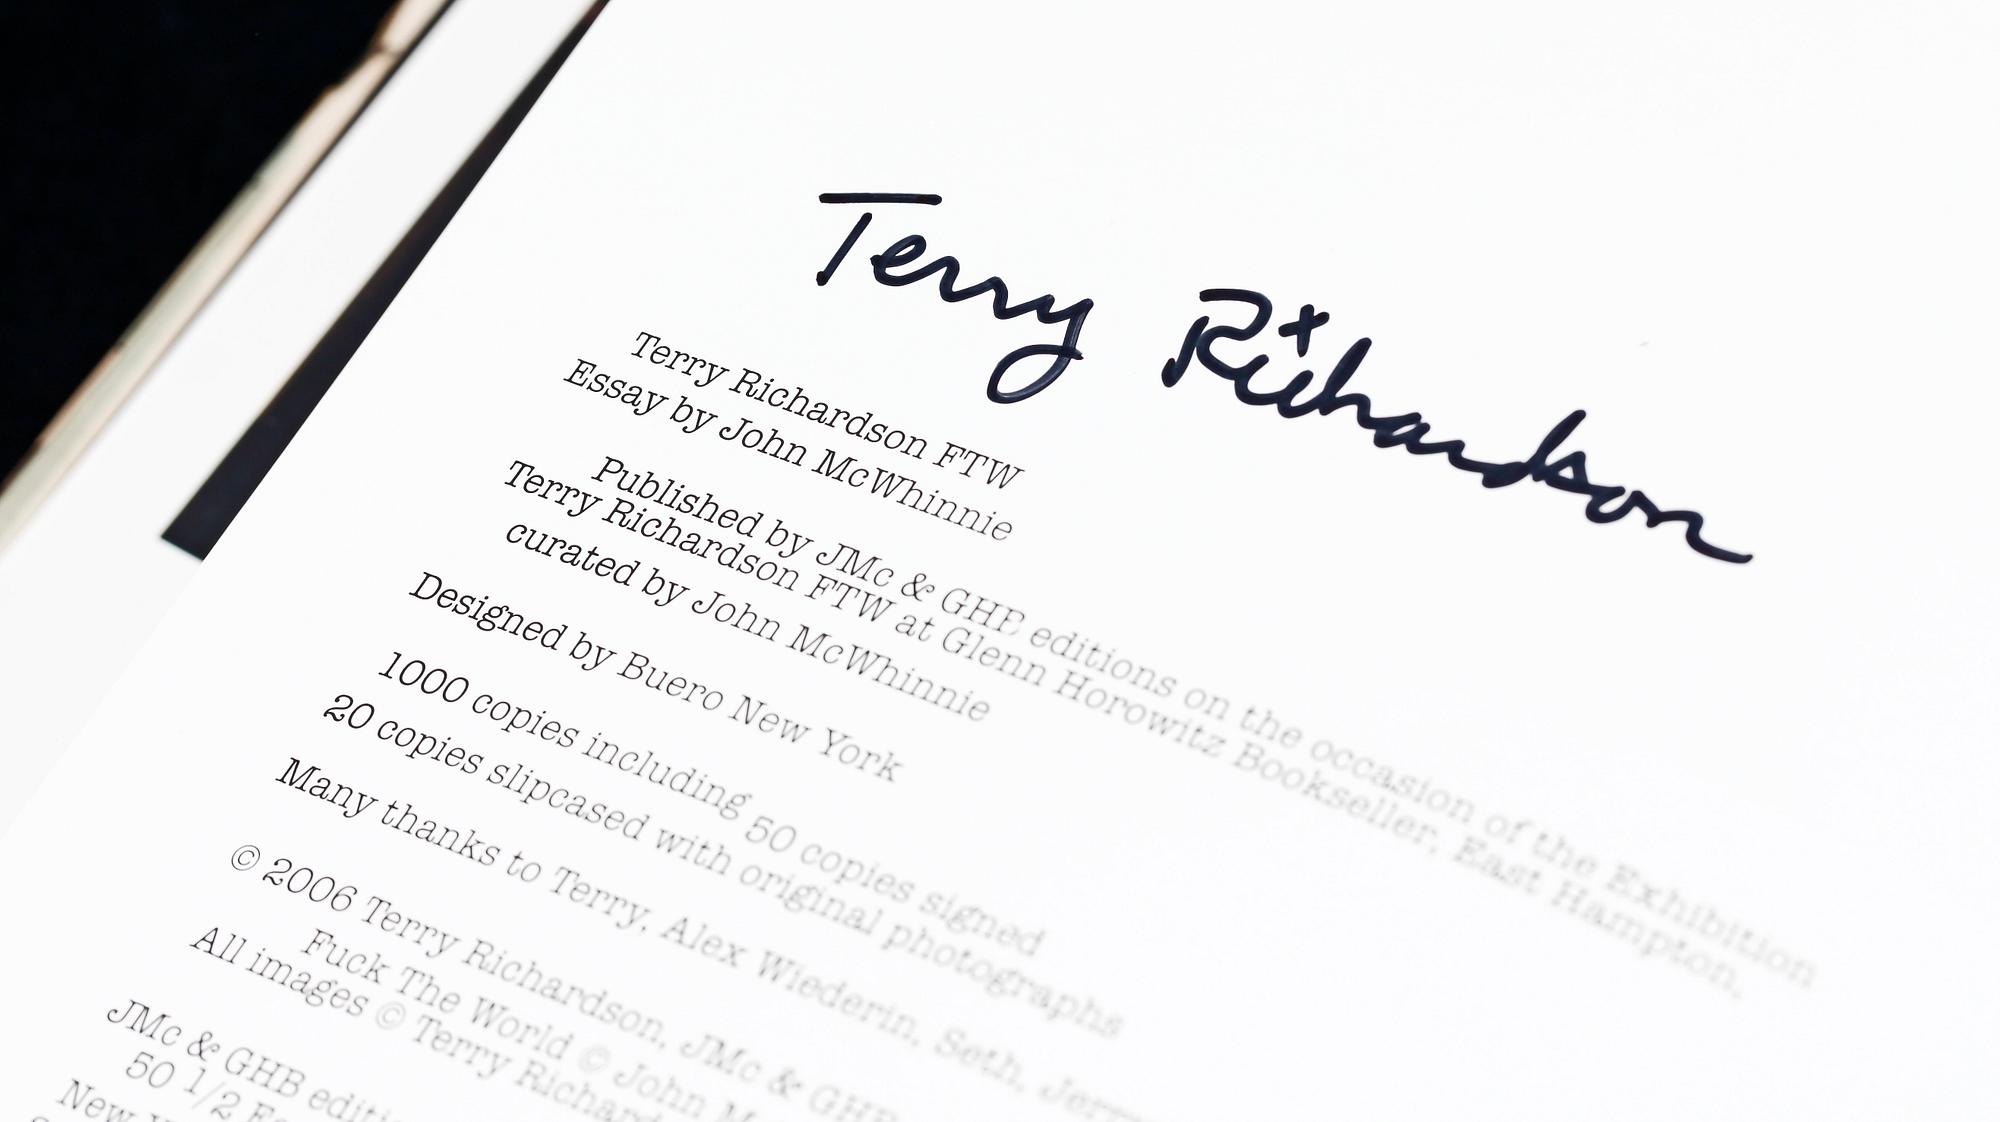 Terry Richardson
Terry Richardson FTW
Essay by John McWhinnie
Published by JMc & GHB editions on the occasion of the Exhibition
Terry Richardson FTW at Glenn Horowitz Bookseller, East Hampton,
curated by John McWhinnie
Designed by Buero New York
1000 copies including 50 copies signed
20 copies slipcased with original photographs
Many thanks to Terry, Alex Wiederin, Seth, Jerry
© 2006 Terry Richardson, JMc & GHB
Fuck The World © John M
All images © Terry Richard
JMc & GHB editi
50 1/2 Ea
New Y